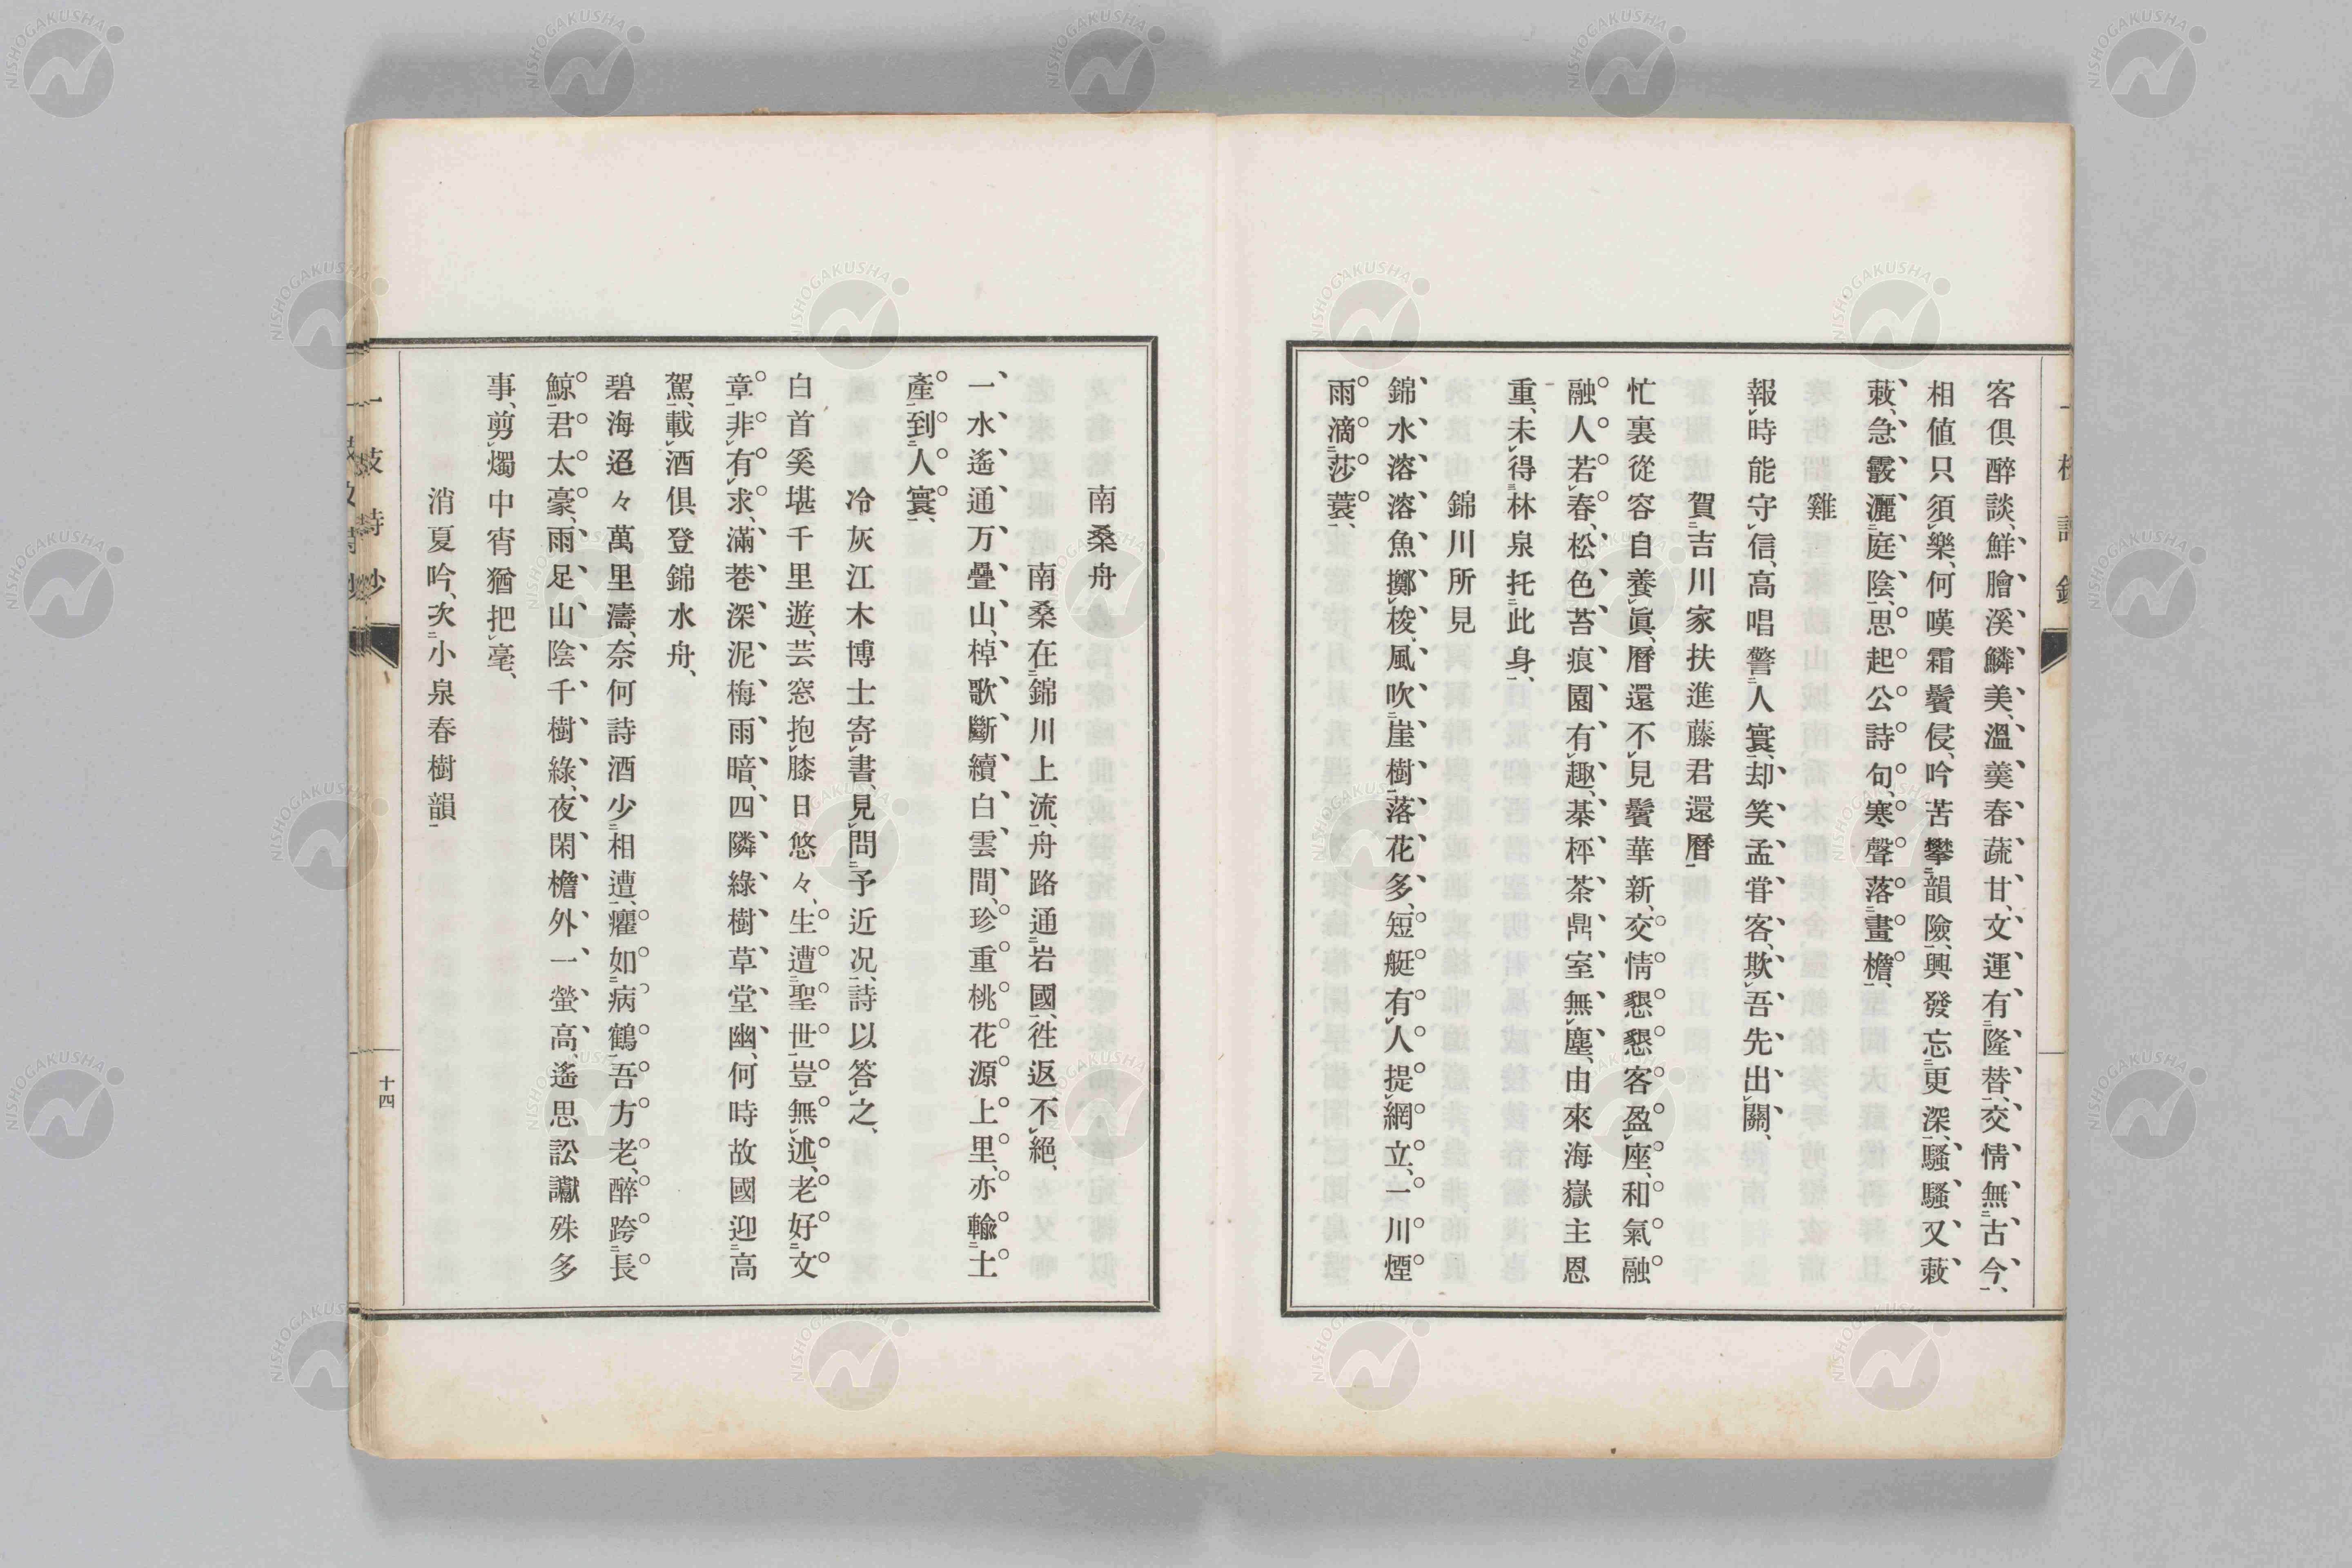 客倶醉談、鮮膾溪鱗美、溫羹春蔬甘、文運有隆替、交情無古今、
相値只須樂、何嘆霜鬢侵、吟苦攀韻險、興發忘更深、騷騷又蔌
蔌、急霰灑庭陰、思起公詩句、寒聲落畫檐、
雞
報時能守信、高唱警人寰、却笑孟甞客、欺吾先出關、
賀吉川家扶進藤君還曆
忙裏從容自養眞、曆還不見鬢華新、交情懇懇客盈座、和氣融
融人若春、松色苔痕園有趣、棊枰茶鼎室無塵、由來海嶽主恩
重、未得林泉托此身、
錦川所見
錦水溶溶魚擲梭、風吹崖樹落花多、短艇有人提網立、一川煙
雨滴莎蓑、
南桑舟
南桑在錦川上流、舟路通岩國、徃返不絕、
一水遙通万疊山、棹歌斷續白雲間、珍重桃花源上里、亦輸土
產到人寰、
冷灰江木博士寄書、見問予近况、詩以答之、
白首奚堪千里遊、芸窓抱膝日悠々、生遭聖世豈無述、老好文
章非有求、滿巷深泥梅雨暗、四隣綠樹草堂幽、何時故國迎高
駕、載酒倶登錦水舟、
碧海迢々萬里濤、奈何詩酒少相遭、癯如病鶴吾方老、醉跨長
鯨君太豪、雨足山陰千樹綠、夜閑檐外一螢高、遙思訟讞殊多
事、剪燭中宵猶把毫、
消夏吟、次小泉春樹韻
十四